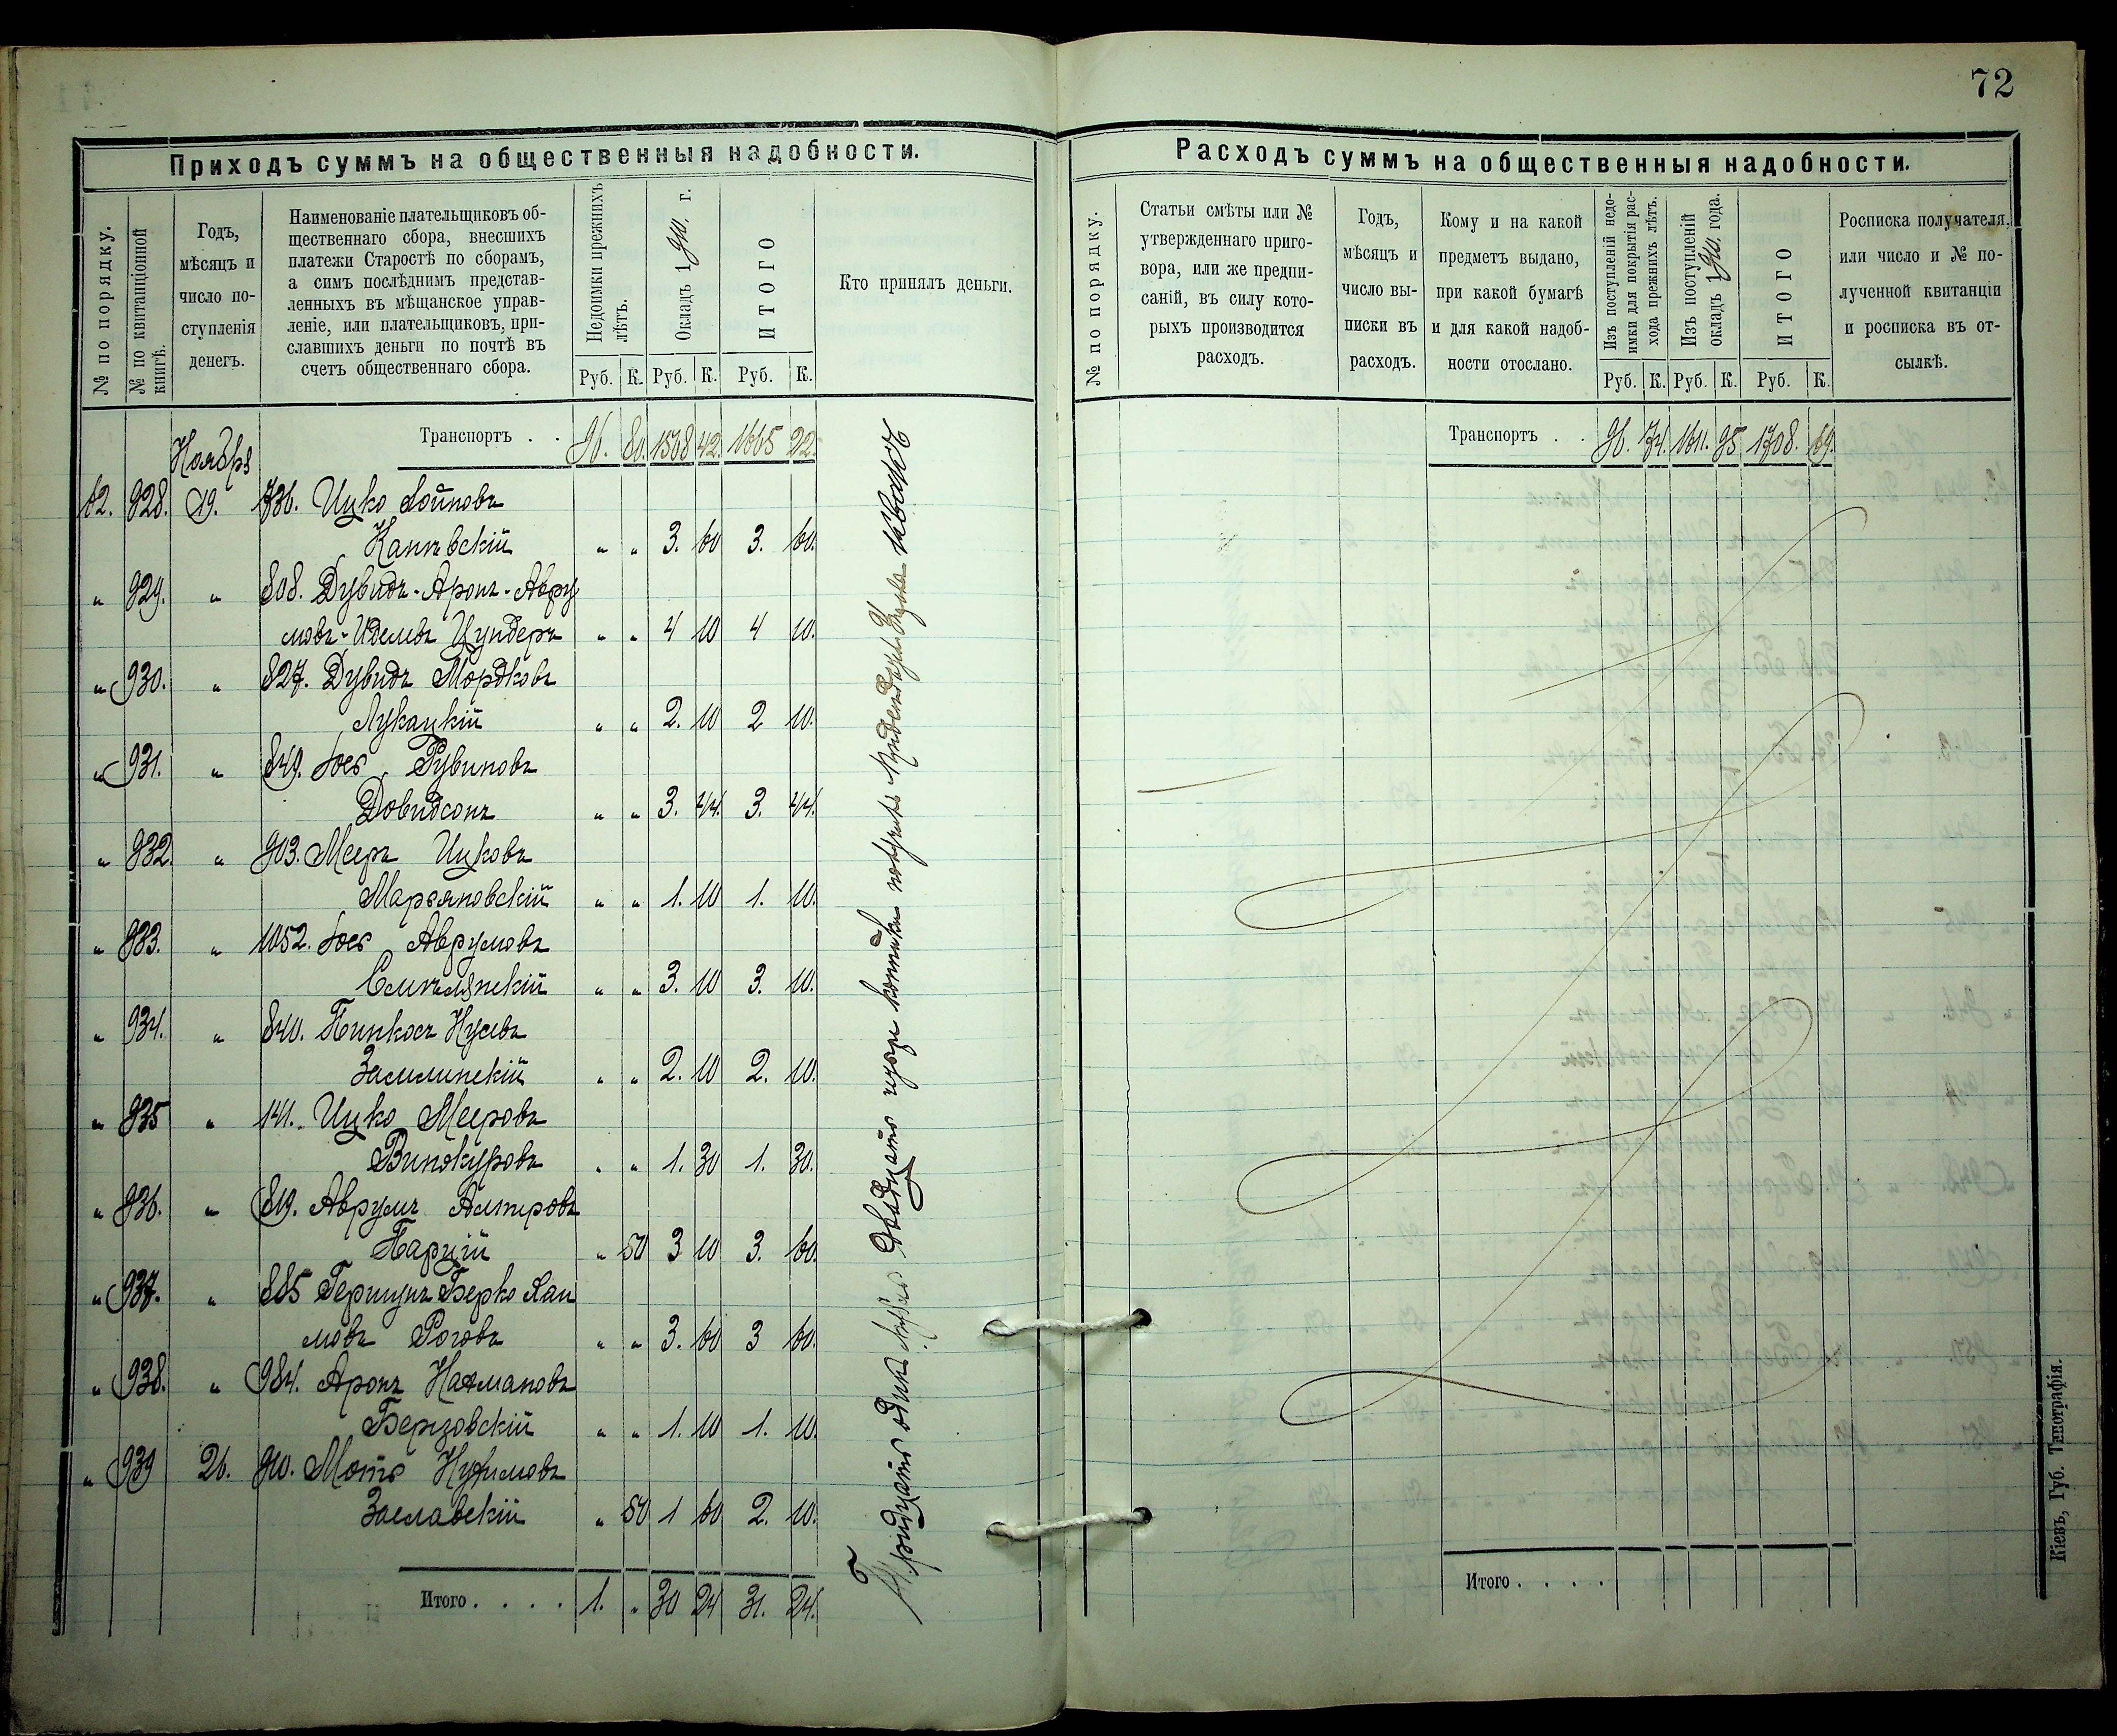 72
Приходъ суммъ на общественныя надобности.
№ по порядку.
№ по квитанціонной книгѣ.
Годъ,
мѣсяцъ и
число по-
ступленія
денегъ.
Наименованіе плательщиковъ об-
щественнаго сбора, внесшихъ
платежи Старостѣ по сборамъ,
а симъ послѣднимъ представ-
ленныхъ въ мѣщанское управ-
леніе, или плательщиковъ, при-
славшихъ деньги по почтѣ въ
счетъ общественнаго сбора.
Недоимки прежнихъ
лѣтъ.
Окладъ 1910. г.
ИТОГО
Кто принялъ деньги.
Руб. К. Руб. К. Руб. К.
Транспортъ . . 96. 80. 1568 42. 1665 22.
Ноября
62. 928. 19. 736. Ицко
Каневскій " " 3. 60 3. 60.
" 929. " 808. Дувидъ-Аронъ-Авру
мовъ-Иделевъ Цундеръ " " 4 10 4 10.
" 930. " 827. Дувидъ Мордковъ
Лукацкій " " 2. 10 2 10.
" 931. " 849. Іось Рувиновъ
Довидсонъ " " 3. 44. 3. 44.
" 932. " 903. Мееръ Ицковъ
Марьяновскій " " 1. 10 1. 10.
" 933. " 1052. Іось Аврумовъ
Смѣлянскій " " 3. 10 3. 10.
" 934. " 840. Пинхосъ
" " 2. 10 2. 10.
" 935 " 141. Ицко Мееровъ
Винокуровъ " " 1. 30 1. 30.
" 936. " 819. Аврумъ
Парцій " 50 3 10 3. 60.
" 937. " 885 Гершунъ Берко Хаи
мовъ Роговъ " " 3. 60 3 60.
" 938. " 984. Аронъ Нахмановъ
Берзовскій " " 1. 10 1. 10.
" 939 26. 910. Моть Нухимовъ
Заславскій " 50 1 60 2. 10.
Итого . . . . 1. " 30 24 31. 24.
Тридцать одинъ рубль двадцать четыре копѣйки
Расходъ суммъ на общественныя надобности.
№ по порядку.
Статьи смѣты или №
утвержденнаго приго-
вора, или же предпи-
саній, въ силу кото-
рыхъ производится
расходъ.
Годъ,
мѣсяцъ и
число вы-
писки въ
расходъ.
Кому и на какой
предметъ выдано,
при какой бумагѣ
и для какой надоб-
ности отослано.
Изъ поступленій недо-
имки для покрытія рас-
хода прежнихъ лѣтъ.
Изъ поступленій
окладъ 1910. года.
ИТОГО
Росписка получателя,
или число и № по-
лученной квитанціи
и росписка въ от-
сылкѣ.
Руб. К. Руб. К. Руб. К.
Транспортъ . . 96. 74. 1611. 95 1708. 69.
Итого . . . .
Кіевъ, Губ. Типографія.